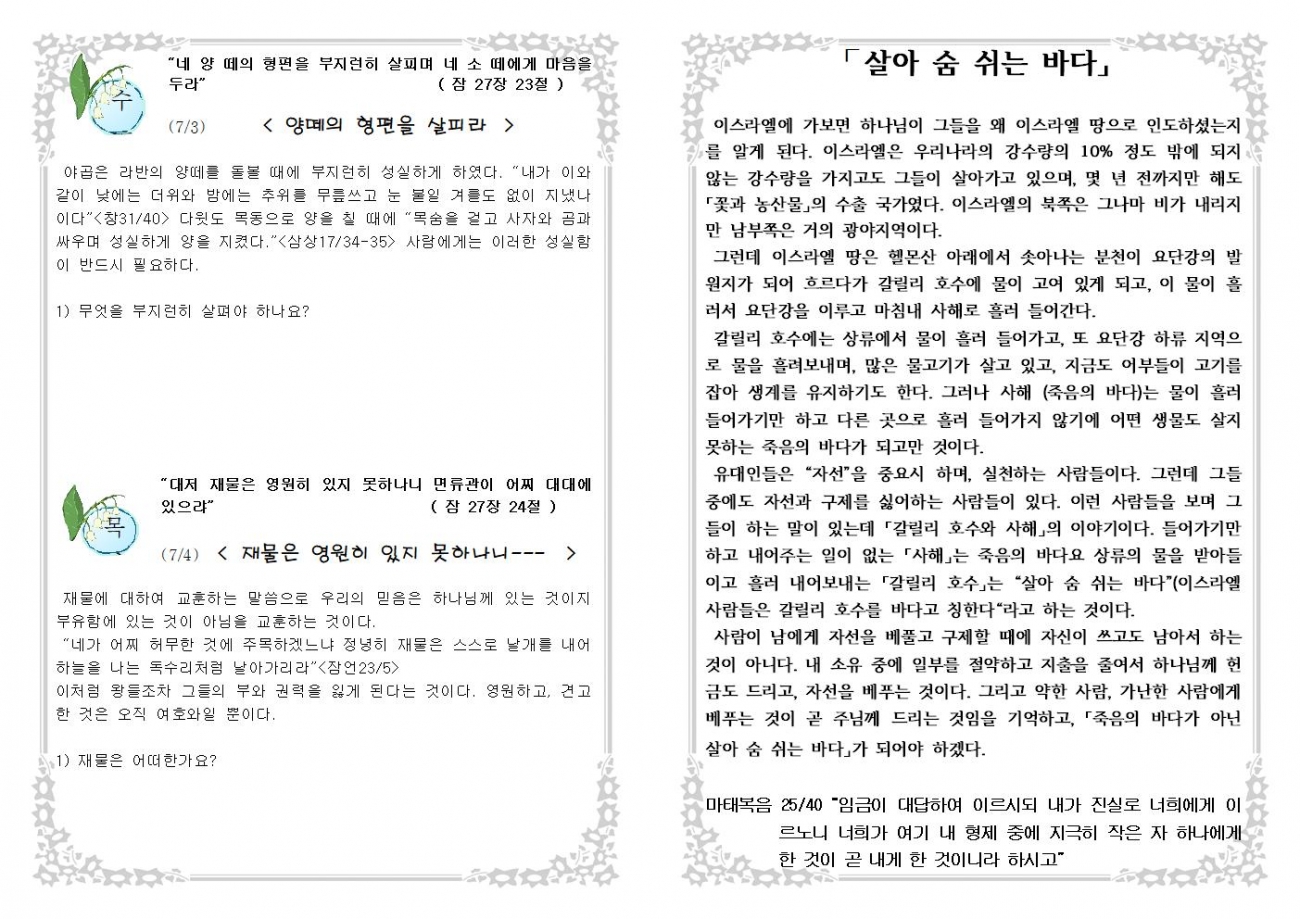 “네 양 떼의 형편을 부지런히 살피며 네 소 떼에게 마음을
두라” ( 잠 27장 23절 )
수
(7/3) < 양떼의 형편을 살피라 >
야곱은 라반의 양떼를 돌볼 때에 부지런히 성실하게 하였다. “내가 이와
같이 낮에는 더위와 밤에는 추위를 무릎쓰고 눈 붙일 겨를도 없이 지냈나
이다”<창31/40> 다윗도 목동으로 양을 칠 때에 “목숨을 걸고 사자와 곰과
싸우며 성실하게 양을 지켰다.”<삼상17/34-35> 사람에게는 이러한 성실함
이 반드시 필요하다.
1) 무엇을 부지런히 살펴야 하나요?
“대저 재물은 영원히 있지 못하나니 면류관이 어찌 대대에
있으랴” ( 잠 27장 24절 )
목
(7/4) < 재물은 영원히 있지 못하나니--- >
재물에 대하여 교훈하는 말씀으로 우리의 믿음은 하나님께 있는 것이지
부유함에 있는 것이 아님을 교훈하는 것이다.
“네가 어찌 허무한 것에 주목하겠느냐 정녕히 재물은 스스로 날개를 내어
하늘을 나는 독수리처럼 날아가리라”<잠언23/5>
이처럼 왕들조차 그들의 부와 권력을 잃게 된다는 것이다. 영원하고, 견고
한 것은 오직 여호와일 뿐이다.
1) 재물은 어떠한가요?
「살아 숨 쉬는 바다」
이스라엘에 가보면 하나님이 그들을 왜 이스라엘 땅으로 인도하셨는지
를 알게 된다. 이스라엘은 우리나라의 강수량의 10% 정도 밖에 되지
않는 강수량을 가지고도 그들이 살아가고 있으며, 몇 년 전까지만 해도
「꽃과 농산물」의 수출 국가였다. 이스라엘의 북쪽은 그나마 비가 내리지
만 남부쪽은 거의 광야지역이다.
그런데 이스라엘 땅은 헬몬산 아래에서 솟아나는 분천이 요단강의 발
원지가 되어 흐르다가 갈릴리 호수에 물이 고여 있게 되고, 이 물이 흘
러서 요단강을 이루고 마침내 사해로 흘러 들어간다.
갈릴리 호수에는 상류에서 물이 흘러 들어가고, 또 요단강 하류 지역으
로 물을 흘려보내며, 많은 물고기가 살고 있고, 지금도 어부들이 고기를
잡아 생계를 유지하기도 한다. 그러나 사해 (죽음의 바다)는 물이 흘러
들어가기만 하고 다른 곳으로 흘러 들어가지 않기에 어떤 생물도 살지
못하는 죽음의 바다가 되고만 것이다.
유대인들은 “자선”을 중요시 하며, 실천하는 사람들이다. 그런데 그들
중에도 자선과 구제를 싫어하는 사람들이 있다. 이런 사람들을 보며 그
들이 하는 말이 있는데 「갈릴리 호수와 사해」의 이야기이다. 들어가기만
하고 내어주는 일이 없는 「사해」는 죽음의 바다요 상류의 물을 받아들
이고 흘러 내어보내는 「갈릴리 호수」는 “살아 숨 쉬는 바다”(이스라엘
사람들은 갈릴리 호수를 바다고 칭한다“라고 하는 것이다.
사람이 남에게 자선을 베풀고 구제할 때에 자신이 쓰고도 남아서 하는
것이 아니다. 내 소유 중에 일부를 절약하고 지출을 줄여서 하나님께 헌
금도 드리고, 자선을 베푸는 것이다. 그리고 약한 사람, 가난한 사람에게
베푸는 것이 곧 주님께 드리는 것임을 기억하고, 「죽음의 바다가 아닌
살아 숨 쉬는 바다」가 되어야 하겠다.
마태복음 25/40 “임금이 대답하여 이르시되 내가 진실로 너희에게 이
르노니 너희가 여기 내 형제 중에 지극히 작은 자 하나에게
한 것이 곧 내게 한 것이니라 하시고”